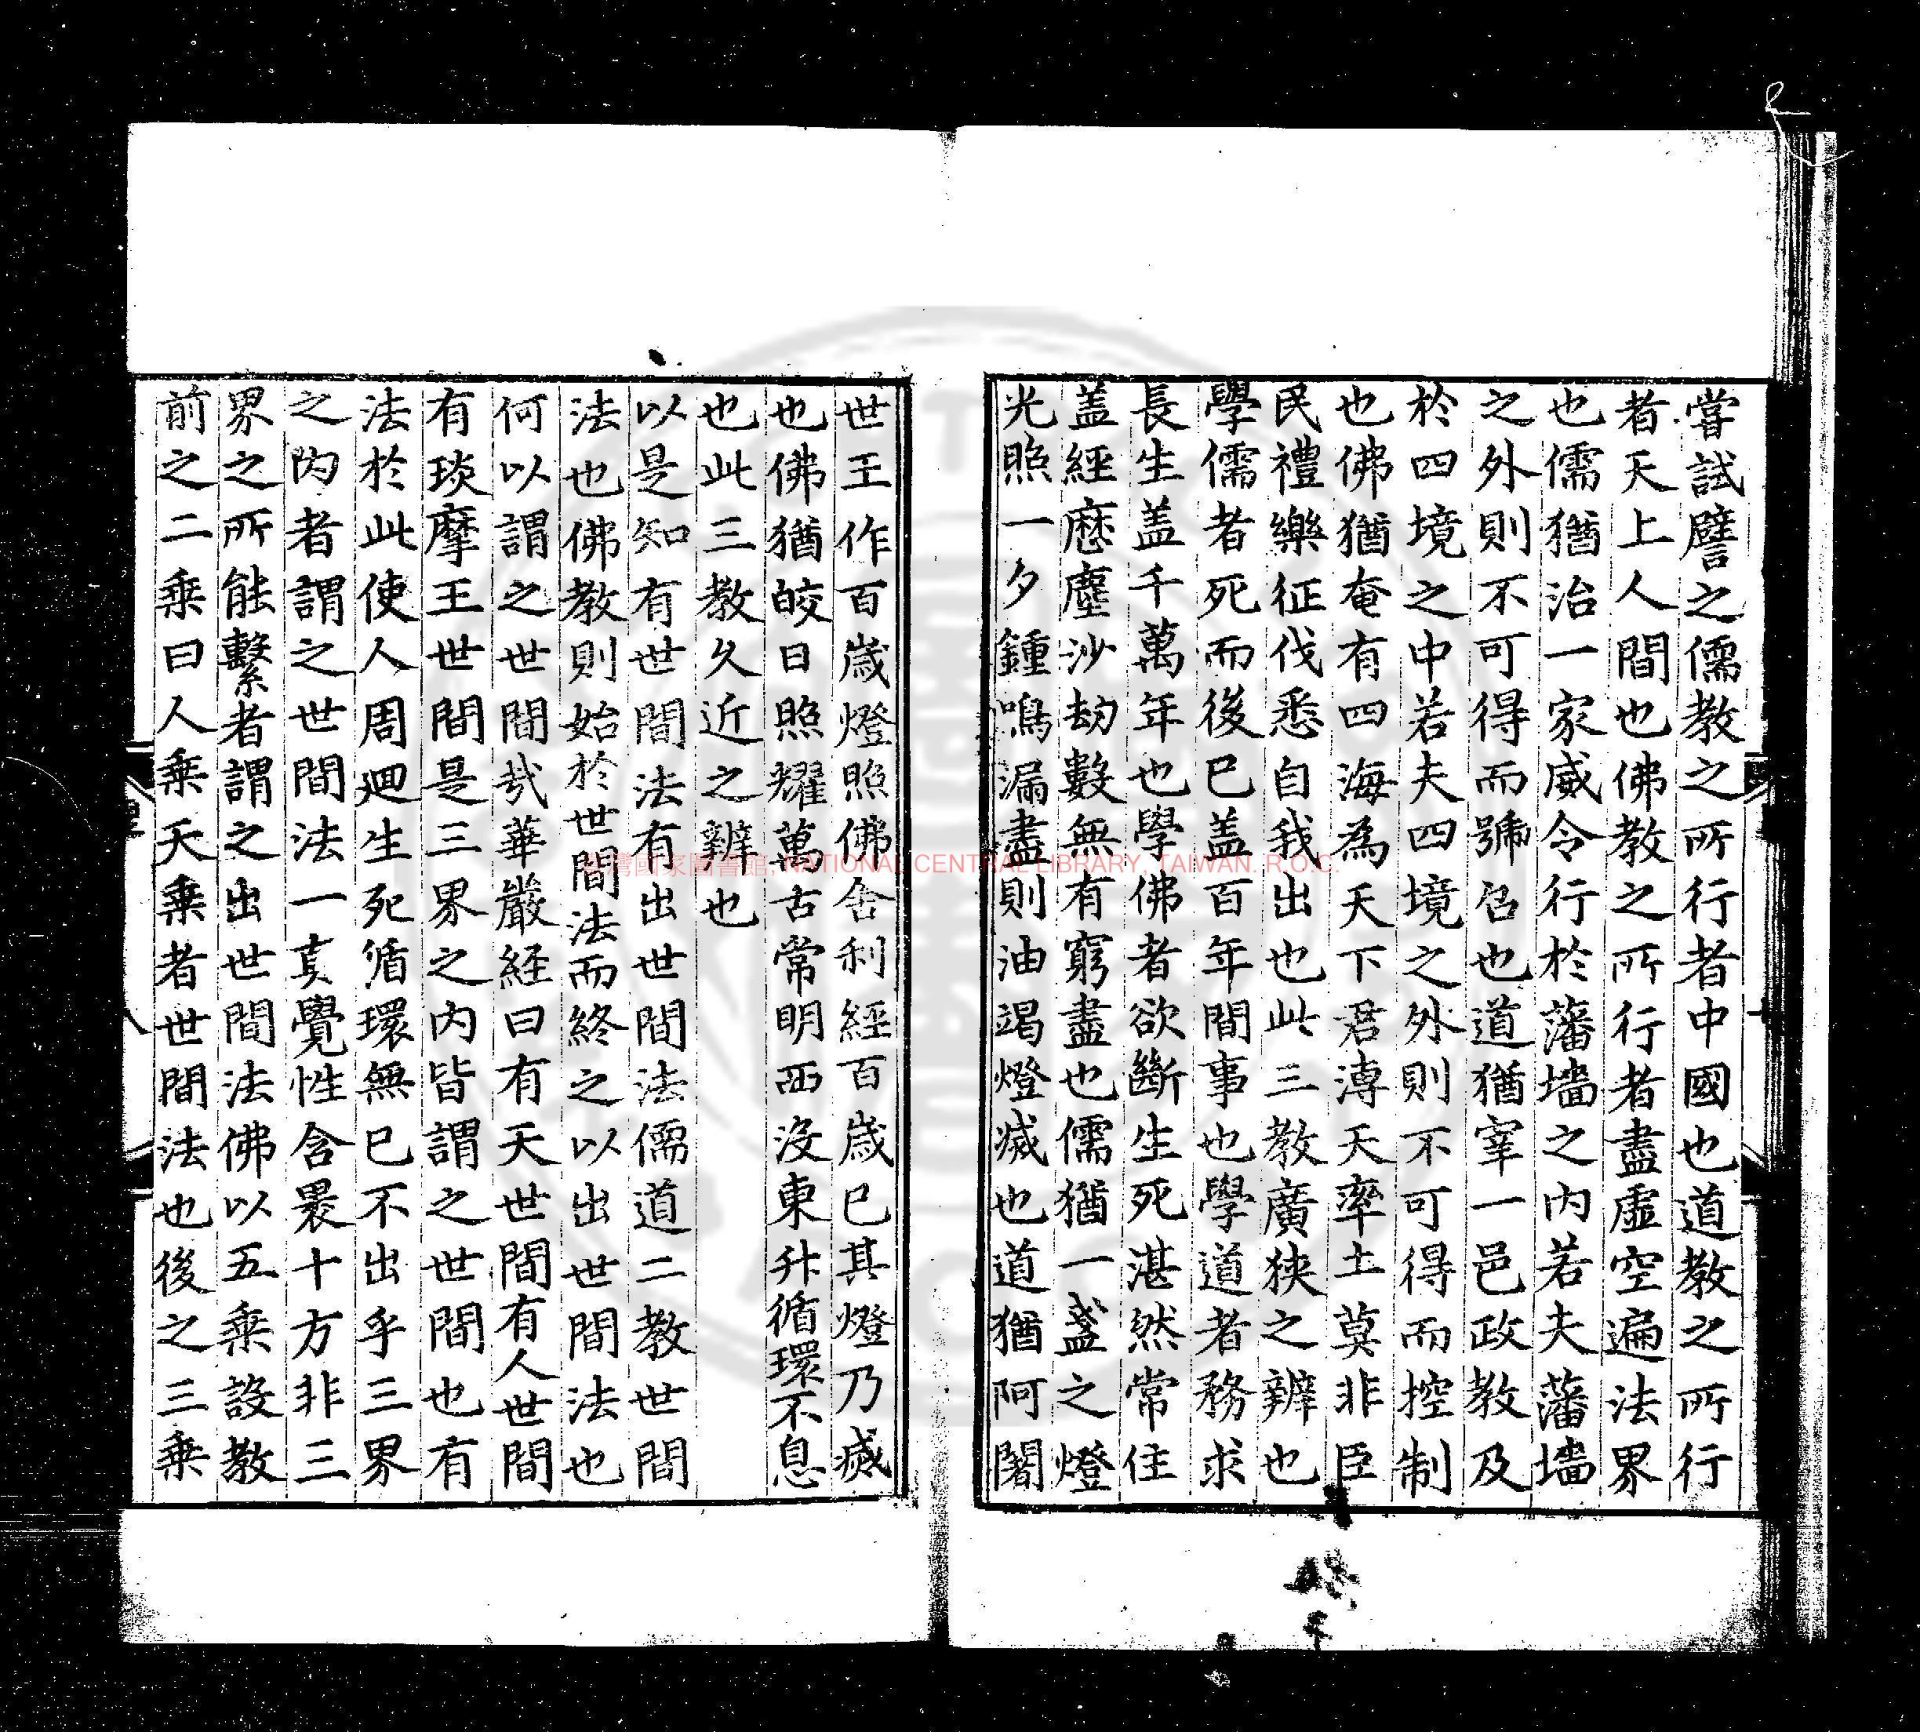 嘗試譬之儒教之所行者中國也道教之所行
者天上人間也佛教之所行者盡虛空遍法界
也儒猶治一家威令行於藩墻之內若夫藩墻
之外則不可得而號召也道猶宰一邑政教及
於四境之中若夫四境之外則不可得而控制
也佛猶奄有四海為天下君溥天率土莫非臣
民禮樂征伐悉自我出也此三教廣狹之辨也
學儒者死而後已盖百年間事也學道者務求
長生盖千萬年也學佛者欲斷生死湛然常住
盖經歷塵沙劫數無有窮盡也儒猶一盞之燈
光照一夕鍾鳴漏盡則油竭燈滅也道猶阿闍
世王作百歲燈照佛舍利經百歲已其燈乃滅
也佛猶皎日照耀萬古常明西沒東升循環不息
也此三教久近之辨也
以是知有世間法有出世間法儒道二教世間
法也佛教則始於世間法而終之以出世間法也
何以謂之世間㢤華嚴經曰有天世間有人世間
有琰摩王世間是三界之內皆謂之世間也有
法於此使人周廻生死循環無已不出乎三界
之內者謂之世間法一真覺性含褁十方非三
界之所能繫者謂之出世間法佛以五乘設教
前之二乘曰人乘天乘者世間法也後之三乘
台灣國家圖書館, NATIONAL CENTRAL LIBRARY, TAIWAN. R.O.C.